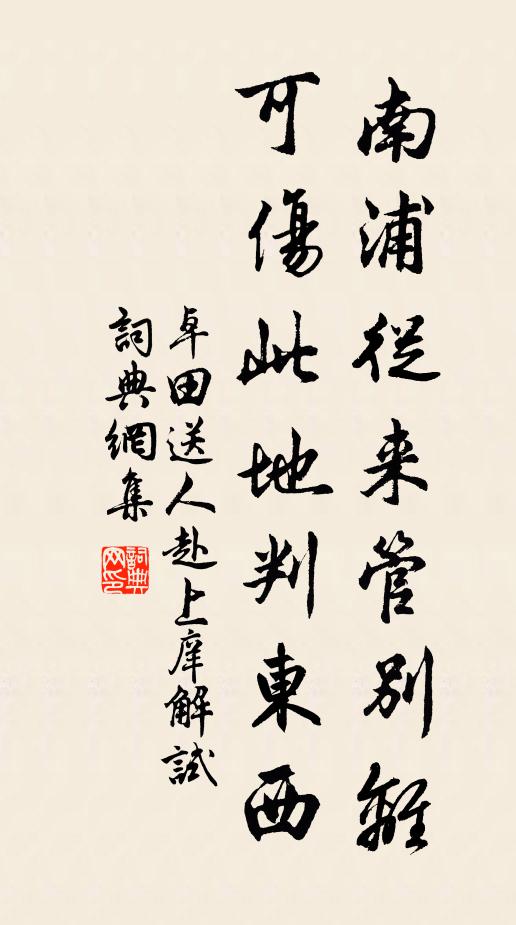 南浦從来管別離
可傷此地判東西
卓田送人赴上庠解試
詞典網集
詞典网印